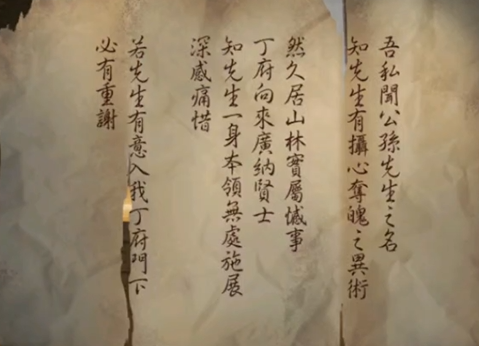 吾私聞公孫先生之名
知先生有攝心奪魄之異術
然久居山林實屬憾事
丁府向來廣納賢士
知先生一身本領無處施展
深感痛惜
若先生有意入我丁府門下
必有重謝